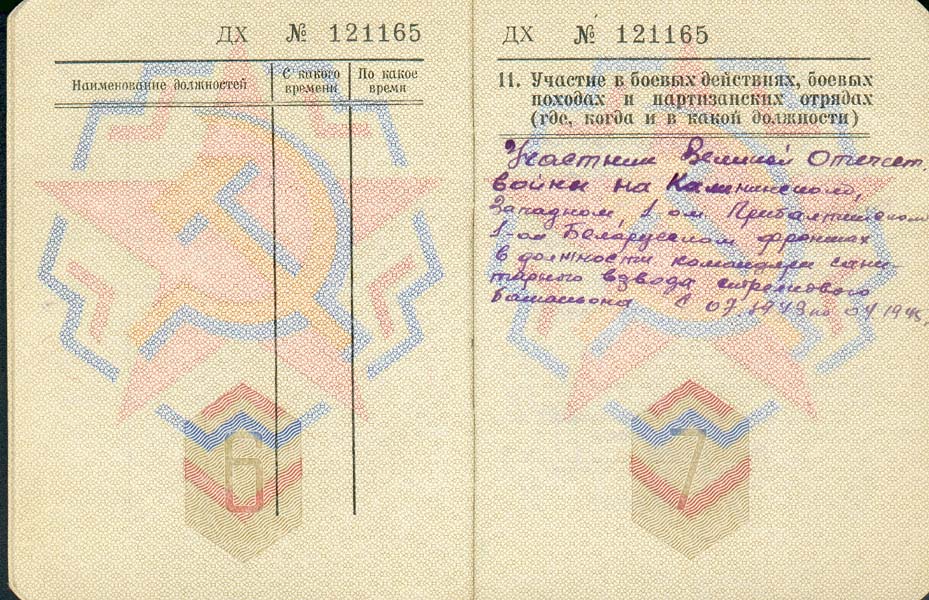 ДХ № 121165
Наименование должностей
С какого времени
По какое время
6
ДХ № 121165
11. Участие в боевых действиях, боевых
походах и партизанских отрядах
(где, когда и в какой должности)
Участник Великой Отечест.
войны на Калининском,
Западном, 1-ом Прибалтийском
1-ом Беларусском фронтах
в должности командира сани-
тарного взвода стрелкового
батальона с 07.1943 по 04 1945.
7